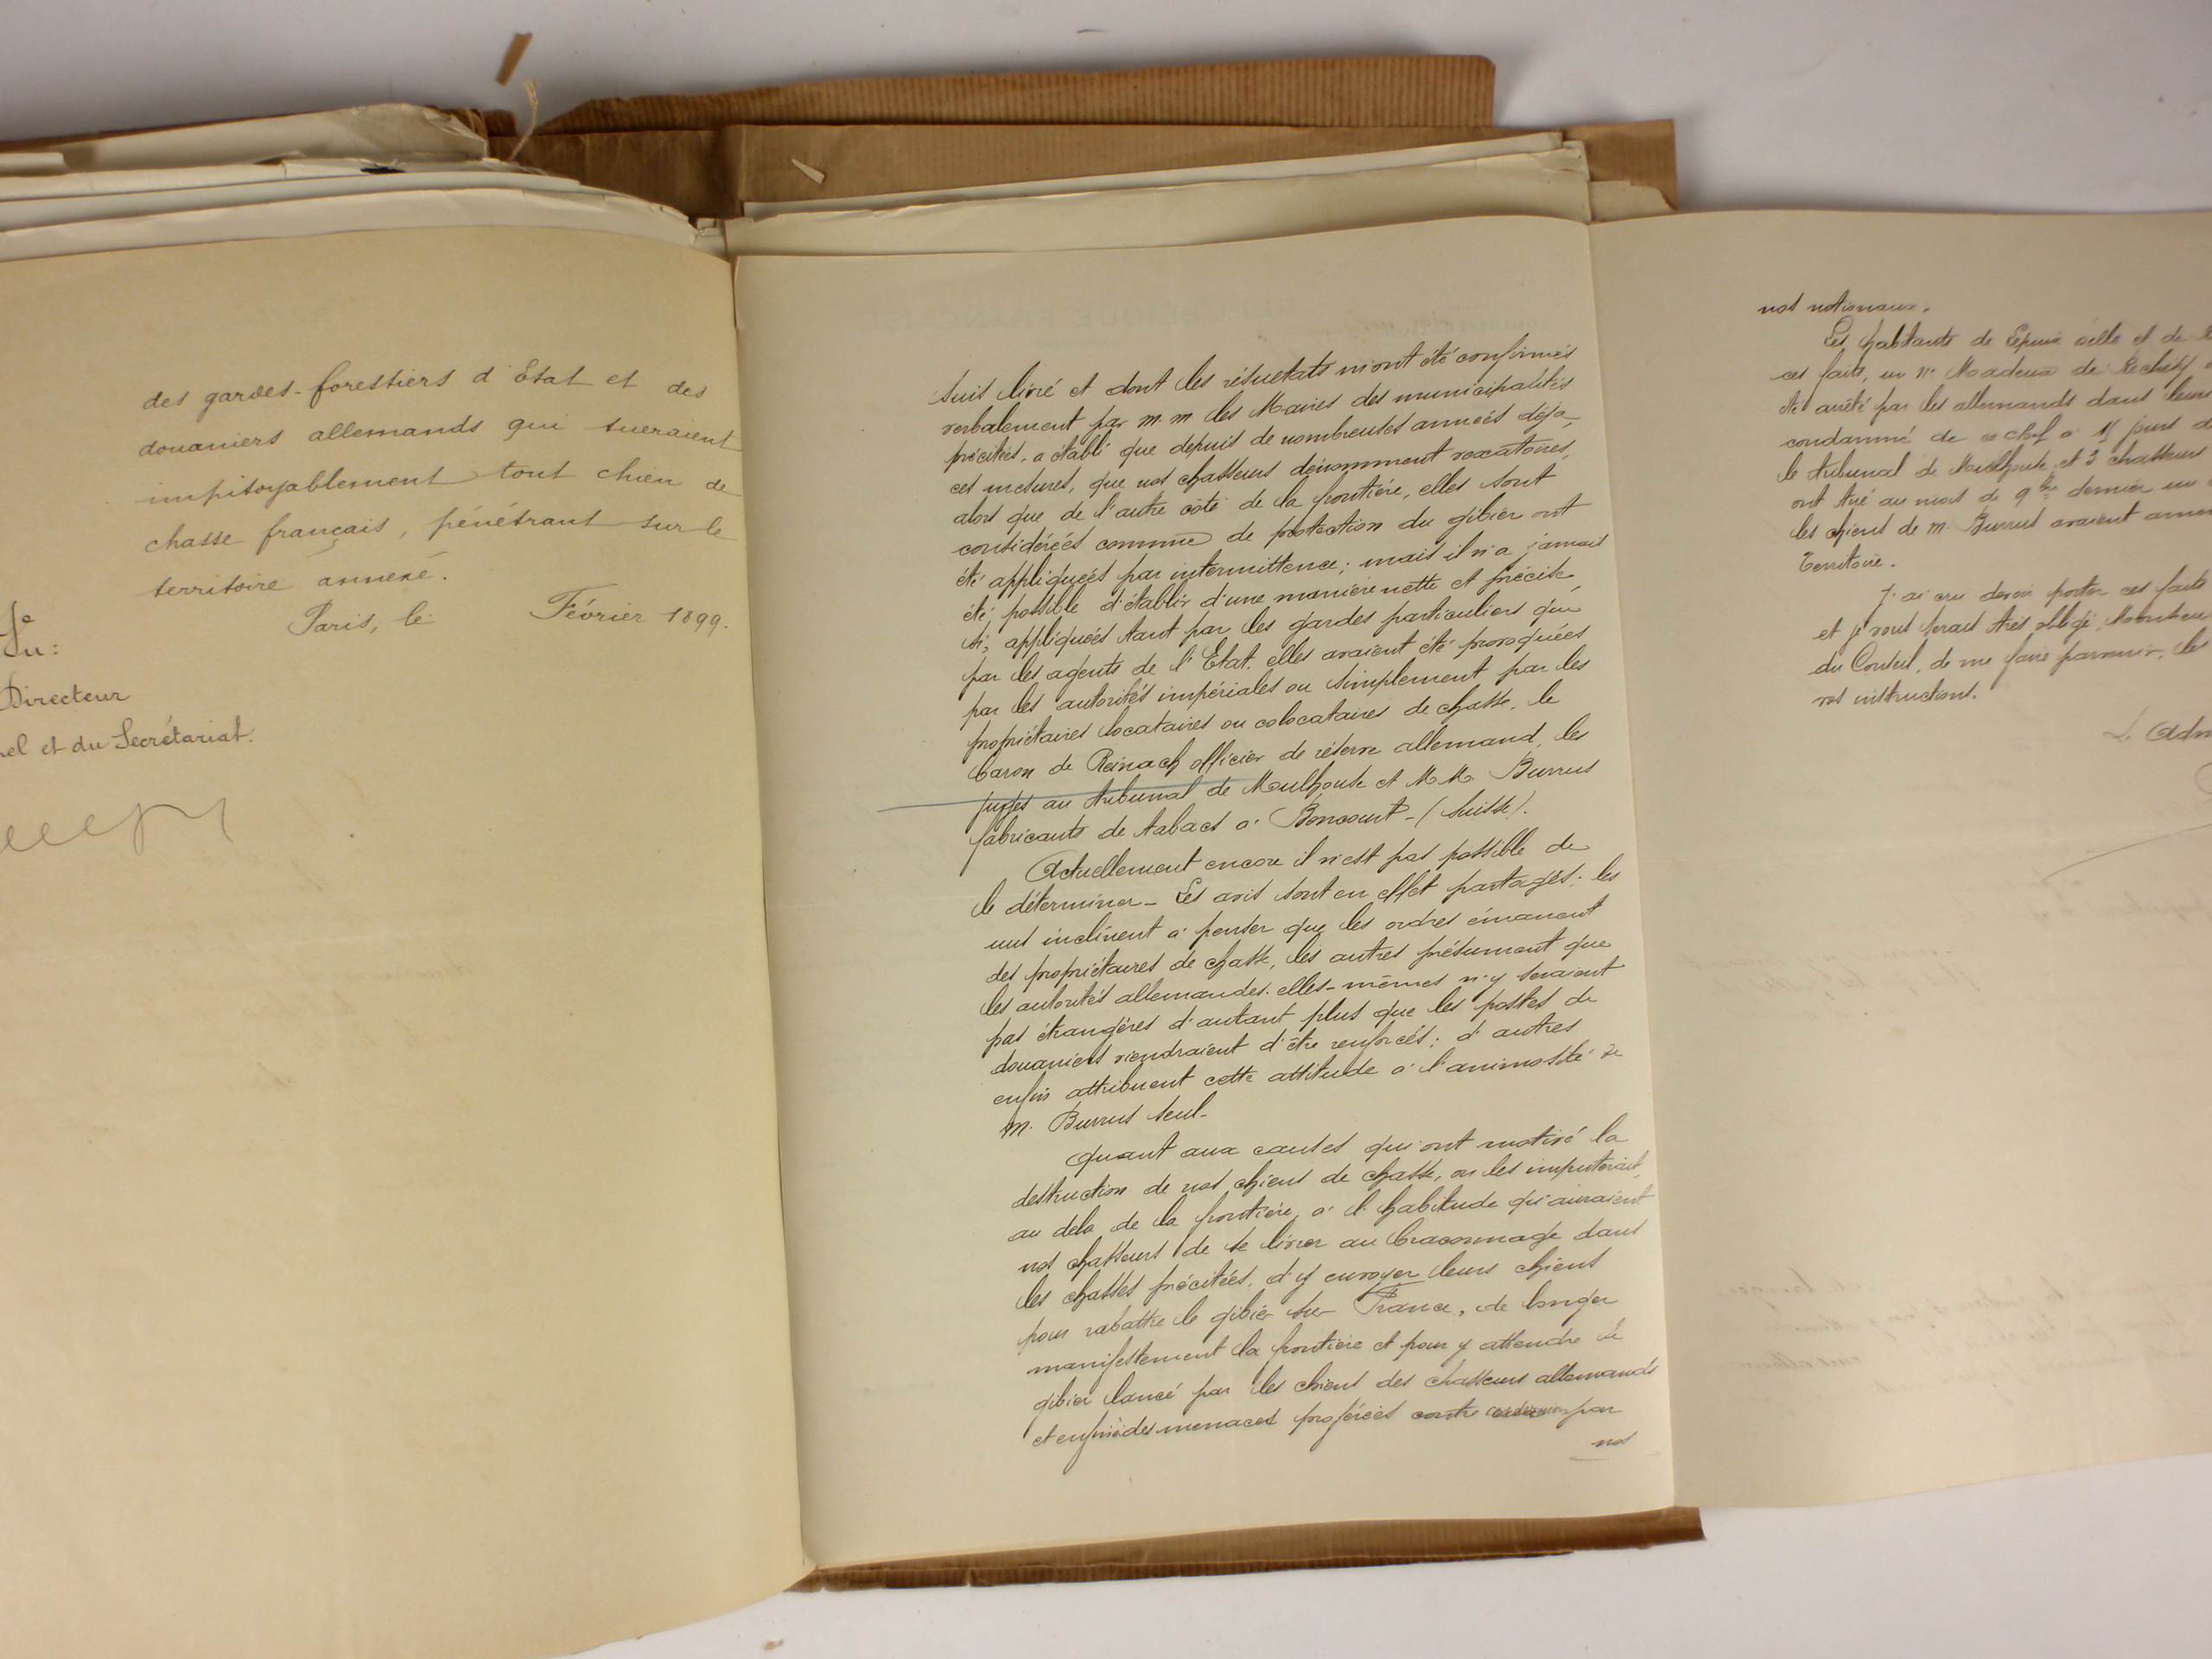 des gardes-forestiers d'Etat et des
douaniers allemands qui tueraient
impitoyablement tout chien de
chasse français, pénétrant sur le
territoire annexé.
Paris, le Février 1899.
Vu:
Directeur
nel et du Secrétariat.
suis livré et dont les résultats m'ont été confirmés
verbalement par M.M les Maires des municipalités
précitées, a établi que depuis de nombreuses années déjà,
ces mesures, que nos chasseurs dénomment vexatoires,
alors que de l'autre côté de la frontière, elles sont
considérées comme de protection du gibier ont
été appliquées par intermittence; mais il n'a jamais
été possible d'établir d'une manière nette et précise,
si, appliquées tant par les gardes particuliers que
par les agents de l'Etat, elles avaient été provoquées
par les autorités impériales ou simplement par les
propriétaires locataires ou colocataires de chasse, le
baron de Reinach officier de réserve allemand, les
juges au tribunal de Mulhouse et M.M. Burrus
fabricants de tabacs à Boncourt - (Suisse).
Actuellement encore il n'est pas possible de
le déterminer - Les avis sont en effet partagés; les
uns inclinent à penser que les ordres émanent
des propriétaires de chasse, les autres présument que
les autorités allemandes elles-mêmes n'y seraient
pas étrangères d'autant plus que les postes de
douaniers viendraient d'être renforcés; d'autres
enfin attribuent cette attitude à l'animosité de
M. Burrus seul -
Quant aux causes qui ont motivé la
destruction de nos chiens de chasse, on les imputerait,
au delà de la frontière, à l'habitude qu'auraient
nos chasseurs de se livrer au braconnage dans
les chasses précitées, d'y envoyer leurs chiens
pour rabattre le gibier sur France, de longer
manifestement la frontière et pour y attendre le
gibier lancé par les chiens des chasseurs allemands
et enfin à des menaces proférées contre par
nos
nos nationaux.
Les habitants de ville et de
ces faits, un Sr Madeux de Réchésy
été arrêté par les allemands dans leurs
condamné de ce chef à jours de
le tribunal de Mulhouse et 3 chasseurs
ont tué au mois de 9bre dernier un
les chiens de M. Burrus avaient amen
territoire.
J'ai cru devoir porter ces faits
et je vous serais très obligé, Monsieu
du Conseil, de me faire parvenir, les
vos instructions.
L'Adm